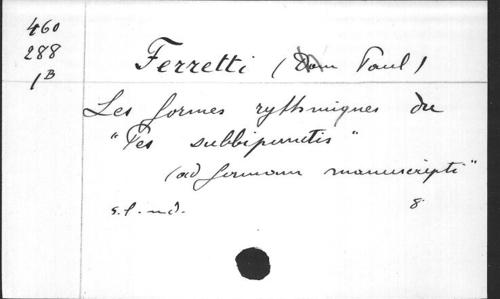 460
288
1B
Ferretti (Dom Paul)
Les formes rythmiques du
"Pes subbipunctis"
(ad formam manuscripti"
s.l.-n.d. 8